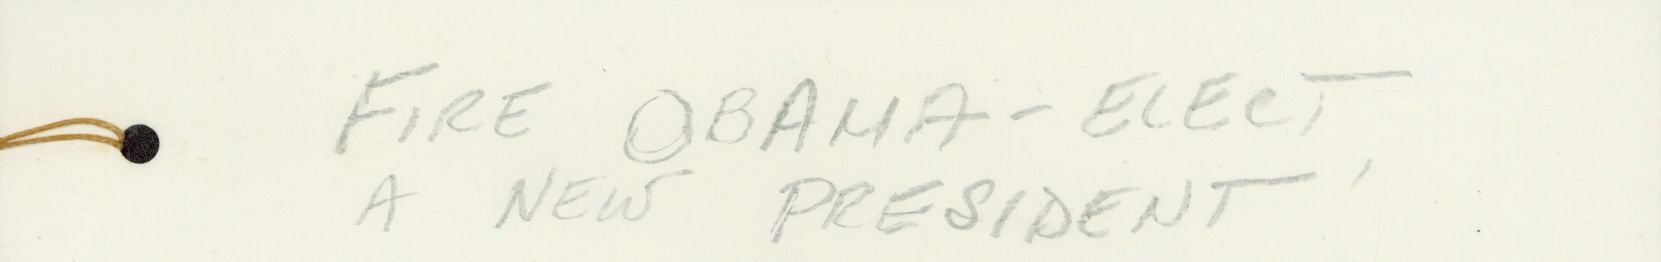 FIRE OBAMA - ELECT
A NEW PRESIDENT'